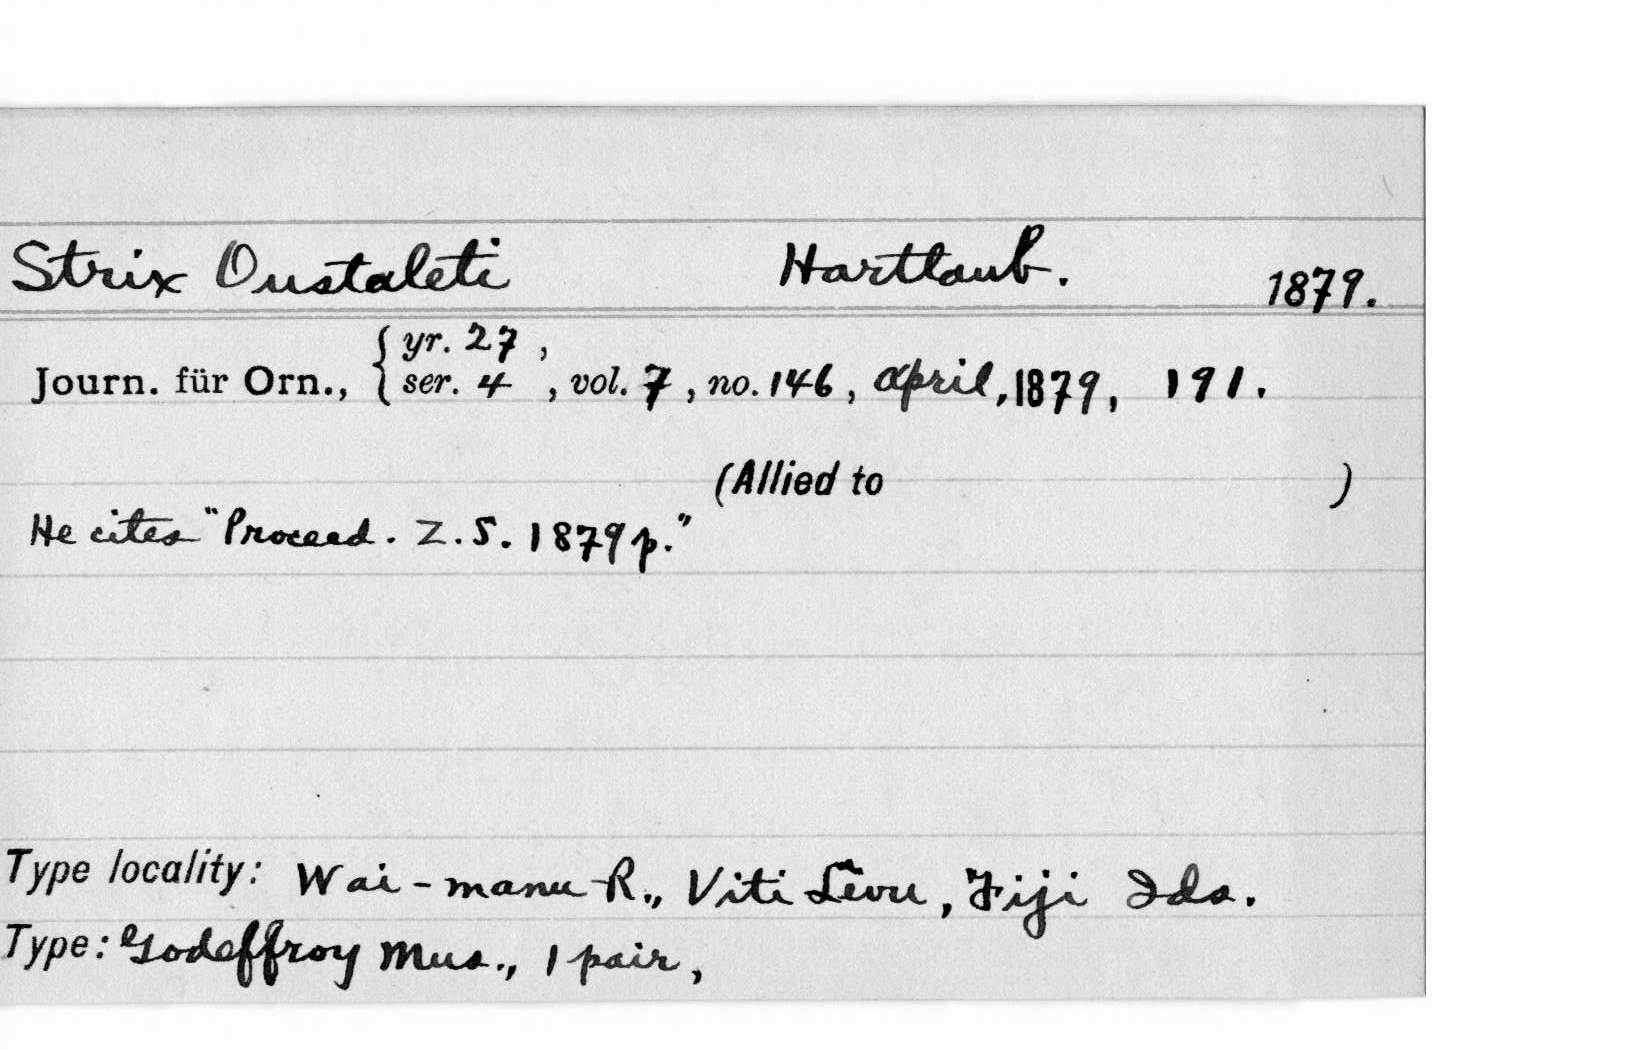 Strix Oustaleti Hartlaub. 1879.
Journ. für Orn., { yr. 27 ,
ser. 4 , vol. 7 , no. 146 , April, 1879, 191.
(Allied to )
He cites "Proceed. Z. S. 1879 p."
Type locality: Wai-manu R., Viti Lêvu, Fiji Ids.
Type: Godeffroy Mus., 1 pair,